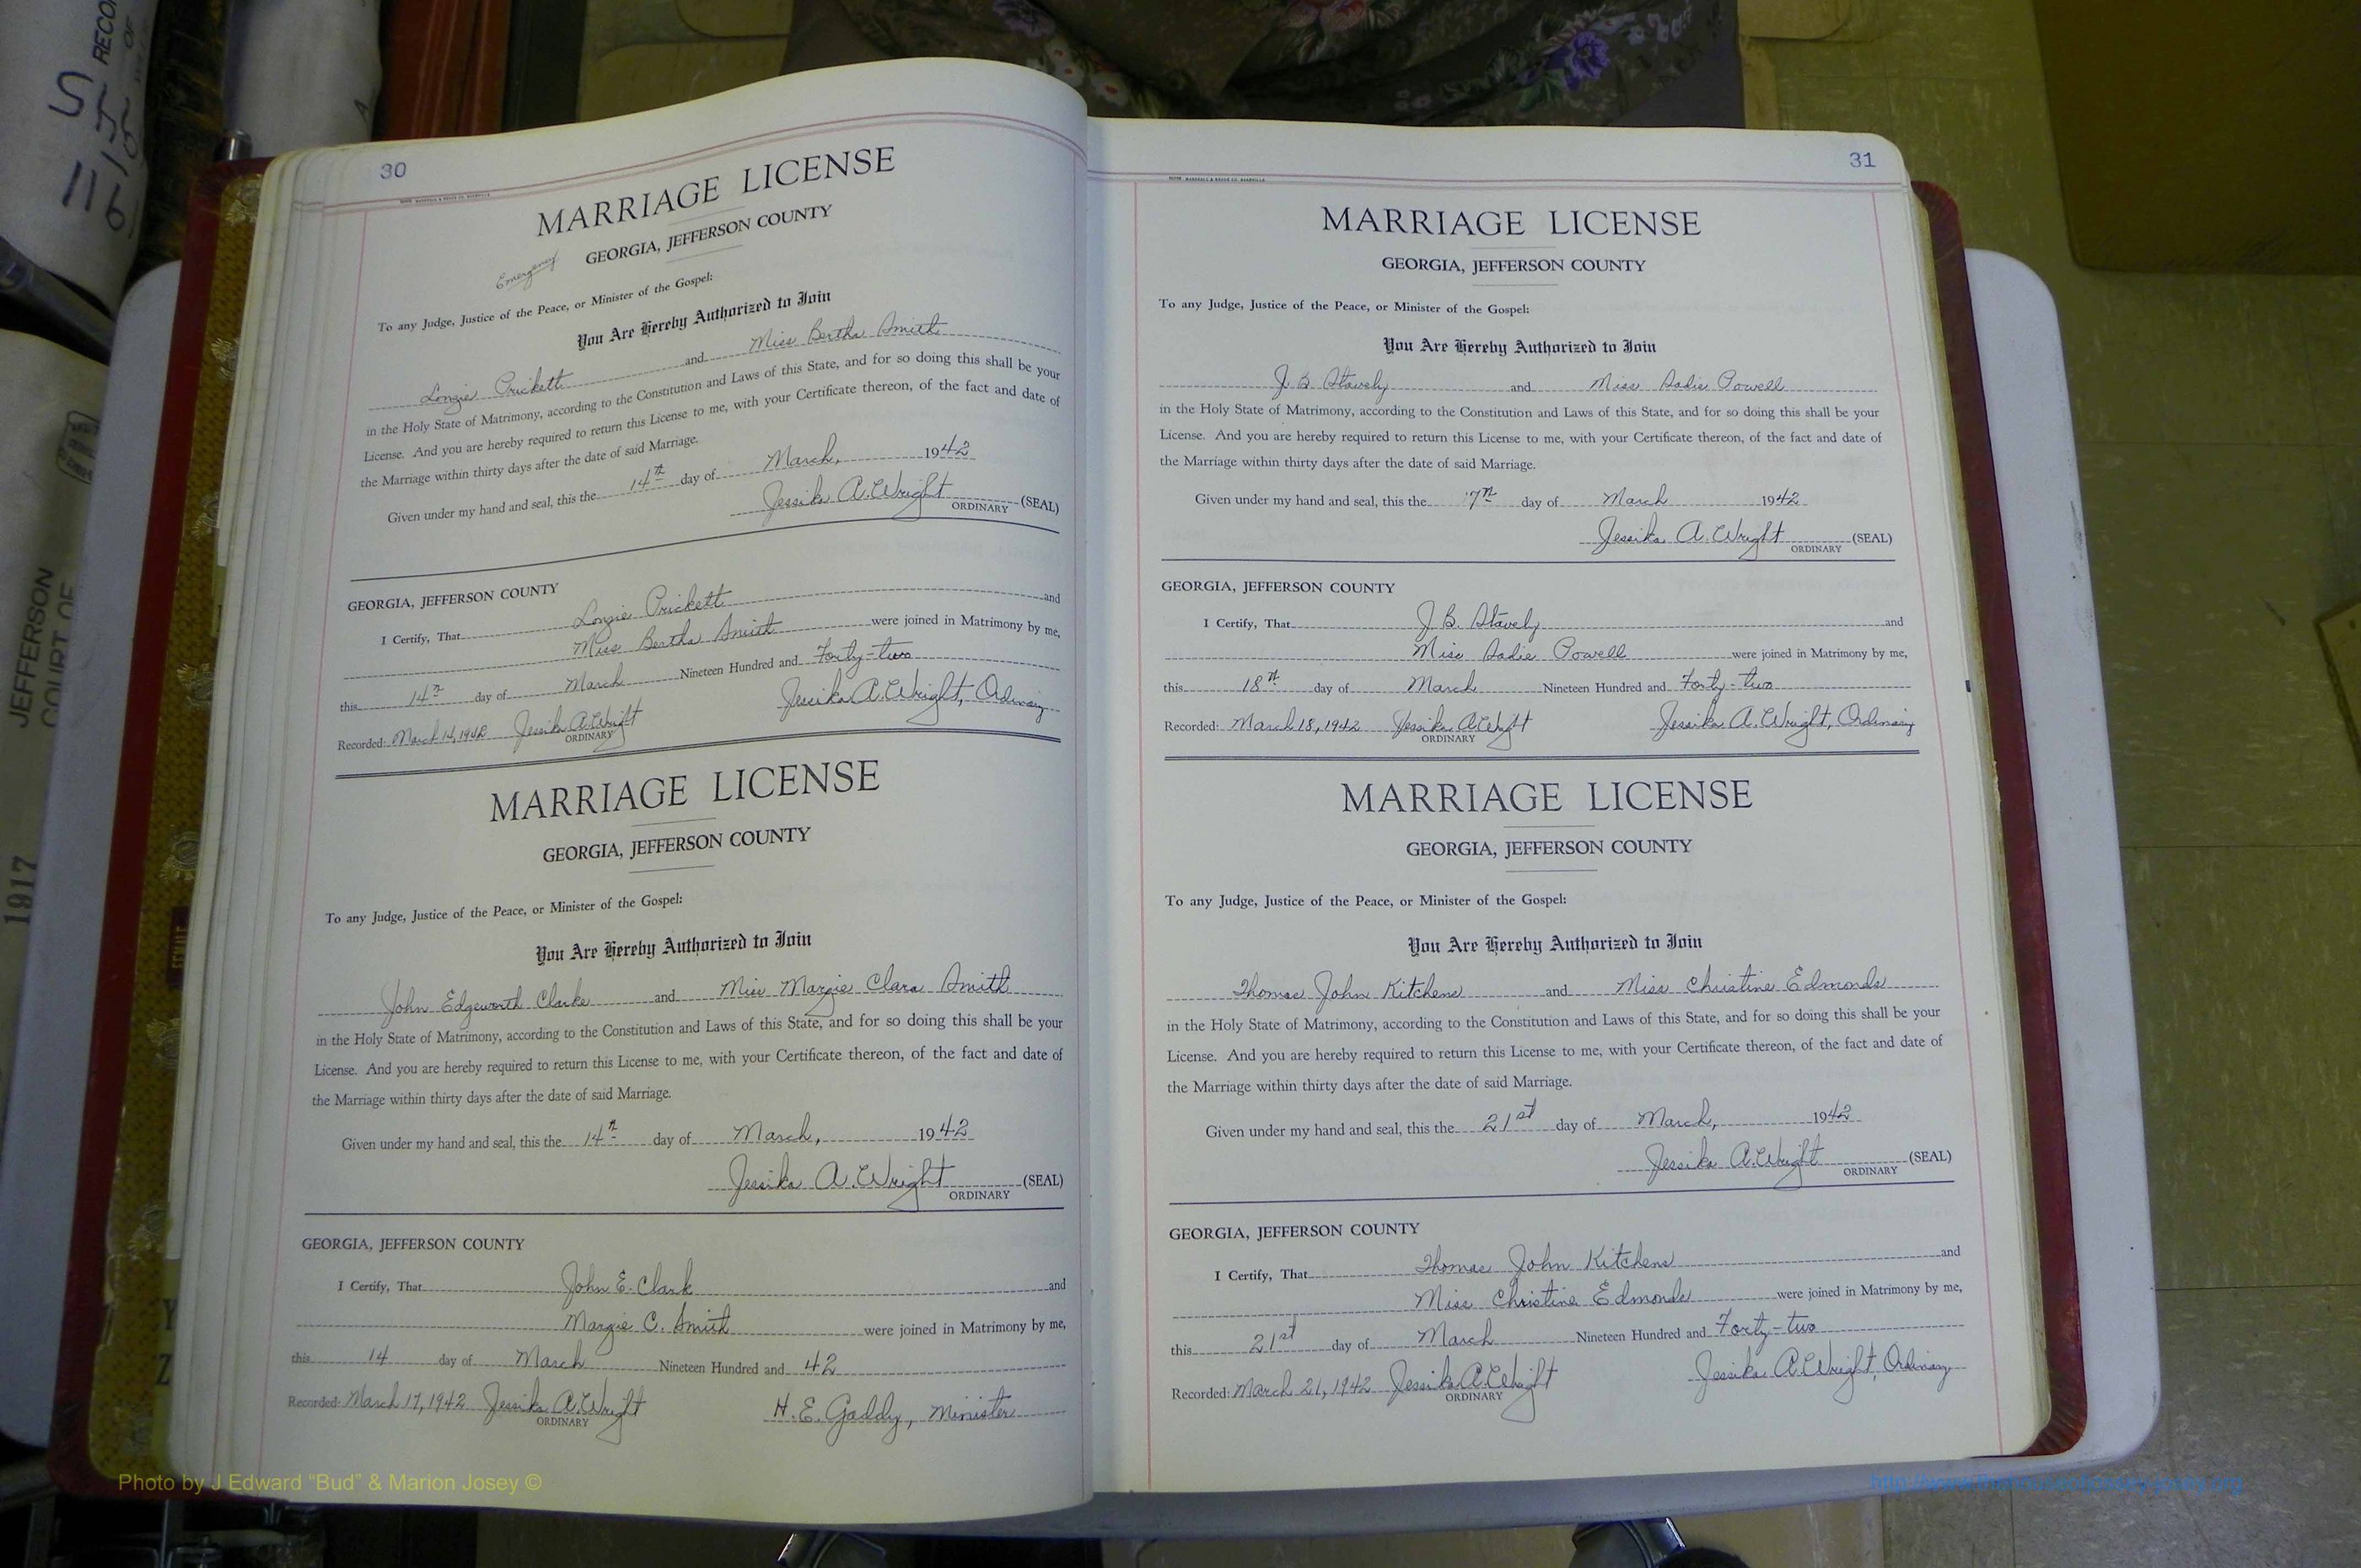 S RECO
OF
1155
6-16
JEFFERSON
COURT OF
1917
30
MARRIAGE LICENSE
GEORGIA, JEFFERSON COUNTY
Emergency
To any Judge, Justice of the Peace, or Minister of the Gospel:
You Are Hereby Authorized to Join
Lonzie Prickett and Miss Bertha Smith
in the Holy State of Matrimony, according to the Constitution and Laws of this State, and for so doing this shall be your
License. And you are hereby required to return this License to me, with your Certificate thereon, of the fact and date of
the Marriage within thirty days after the date of said Marriage.
Given under my hand and seal, this the 14th day of March, 1942
Jessika A. Wright (SEAL)
ORDINARY
GEORGIA, JEFFERSON COUNTY
I Certify, That Lonzie Prickett and
Miss Bertha Smith were joined in Matrimony by me,
this 14th day of March Nineteen Hundred and Forty-two
Recorded: March 14, 1942 Jessika A. Wright Jessika A. Wright, Ordinary
ORDINARY
MARRIAGE LICENSE
GEORGIA, JEFFERSON COUNTY
To any Judge, Justice of the Peace, or Minister of the Gospel:
You Are Hereby Authorized to Join
John Edgeworth Clarke and Miss Margie Clara Smith
in the Holy State of Matrimony, according to the Constitution and Laws of this State, and for so doing this shall be your
License. And you are hereby required to return this License to me, with your Certificate thereon, of the fact and date of
the Marriage within thirty days after the date of said Marriage.
Given under my hand and seal, this the 14th day of March, 1942
Jessika A. Wright (SEAL)
ORDINARY
GEORGIA, JEFFERSON COUNTY
I Certify, That John E. Clark and
Margie C. Smith were joined in Matrimony by me,
this 14 day of March Nineteen Hundred and 42
Recorded: March 17, 1942 Jessika A. Wright H. E. Gaddy, Minister
ORDINARY
31
MARRIAGE LICENSE
GEORGIA, JEFFERSON COUNTY
To any Judge, Justice of the Peace, or Minister of the Gospel:
You Are Hereby Authorized to Join
J. B. Stavely and Miss Sadie Powell
in the Holy State of Matrimony, according to the Constitution and Laws of this State, and for so doing this shall be your
License. And you are hereby required to return this License to me, with your Certificate thereon, of the fact and date of
the Marriage within thirty days after the date of said Marriage.
Given under my hand and seal, this the 17th day of March 1942
Jessika A. Wright (SEAL)
ORDINARY
GEORGIA, JEFFERSON COUNTY
I Certify, That J. B. Stavely and
Miss Sadie Powell were joined in Matrimony by me,
this 18th day of March Nineteen Hundred and Forty-two
Recorded: March 18, 1942 Jessika A. Wright Jessika A. Wright, Ordinary
ORDINARY
MARRIAGE LICENSE
GEORGIA, JEFFERSON COUNTY
To any Judge, Justice of the Peace, or Minister of the Gospel:
You Are Hereby Authorized to Join
Thomas John Kitchens and Miss Christine Edmonds
in the Holy State of Matrimony, according to the Constitution and Laws of this State, and for so doing this shall be your
License. And you are hereby required to return this License to me, with your Certificate thereon, of the fact and date of
the Marriage within thirty days after the date of said Marriage.
Given under my hand and seal, this the 21st day of March, 1942
Jessika A. Wright (SEAL)
ORDINARY
GEORGIA, JEFFERSON COUNTY
I Certify, That Thomas John Kitchens and
Miss Christine Edmonds were joined in Matrimony by me,
this 21st day of March Nineteen Hundred and Forty-two
Recorded: March 21, 1942 Jessika A. Wright Jessika A. Wright, Ordinary
ORDINARY
Photo by J Edward “Bud” & Marion Josey ©